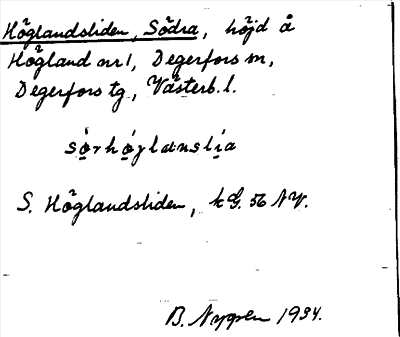 Höglandsliden, Södra, höjd å
Högland nr 1, Degerfors sn,
Degerfors tg, Västerb. l.
sø̣̀rhǿ̣glanslị́a
S. Höglandsliden, kG. 56 NV.
B. Nygren 1934.